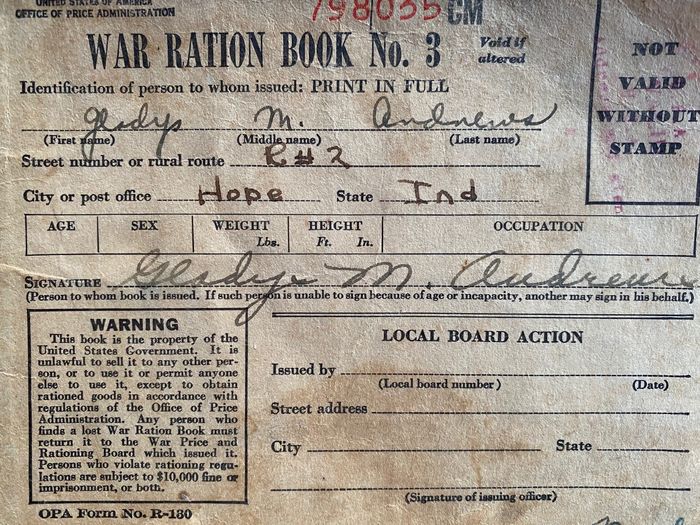 UNITED STATES OF AMERICA
OFFICE OF PRICE ADMINISTRATION
798035 CM
WAR RATION BOOK No. 3
Void if
altered
NOT
VALID
WITHOUT
STAMP
Identification of person to whom issued: PRINT IN FULL
Gladys M. Andrews
(First name) (Middle name) (Last name)
Street number or rural route R#2
City or post office Hope State Ind
AGE SEX WEIGHT HEIGHT OCCUPATION
Lbs. Ft. In.
SIGNATURE Gladys M. Andrews
(Person to whom book is issued. If such person is unable to sign because of age or incapacity, another may sign in his behalf.)
WARNING
This book is the property of the
United States Government. It is
unlawful to sell it to any other per-
son, or to use it or permit anyone
else to use it, except to obtain
rationed goods in accordance with
regulations of the Office of Price
Administration. Any person who
finds a lost War Ration Book must
return it to the War Price and
Rationing Board which issued it.
Persons who violate rationing regu-
lations are subject to $10,000 fine or
imprisonment, or both.
OPA Form No. R-130
LOCAL BOARD ACTION
Issued by
(Local board number) (Date)
Street address
City State
(Signature of issuing officer)